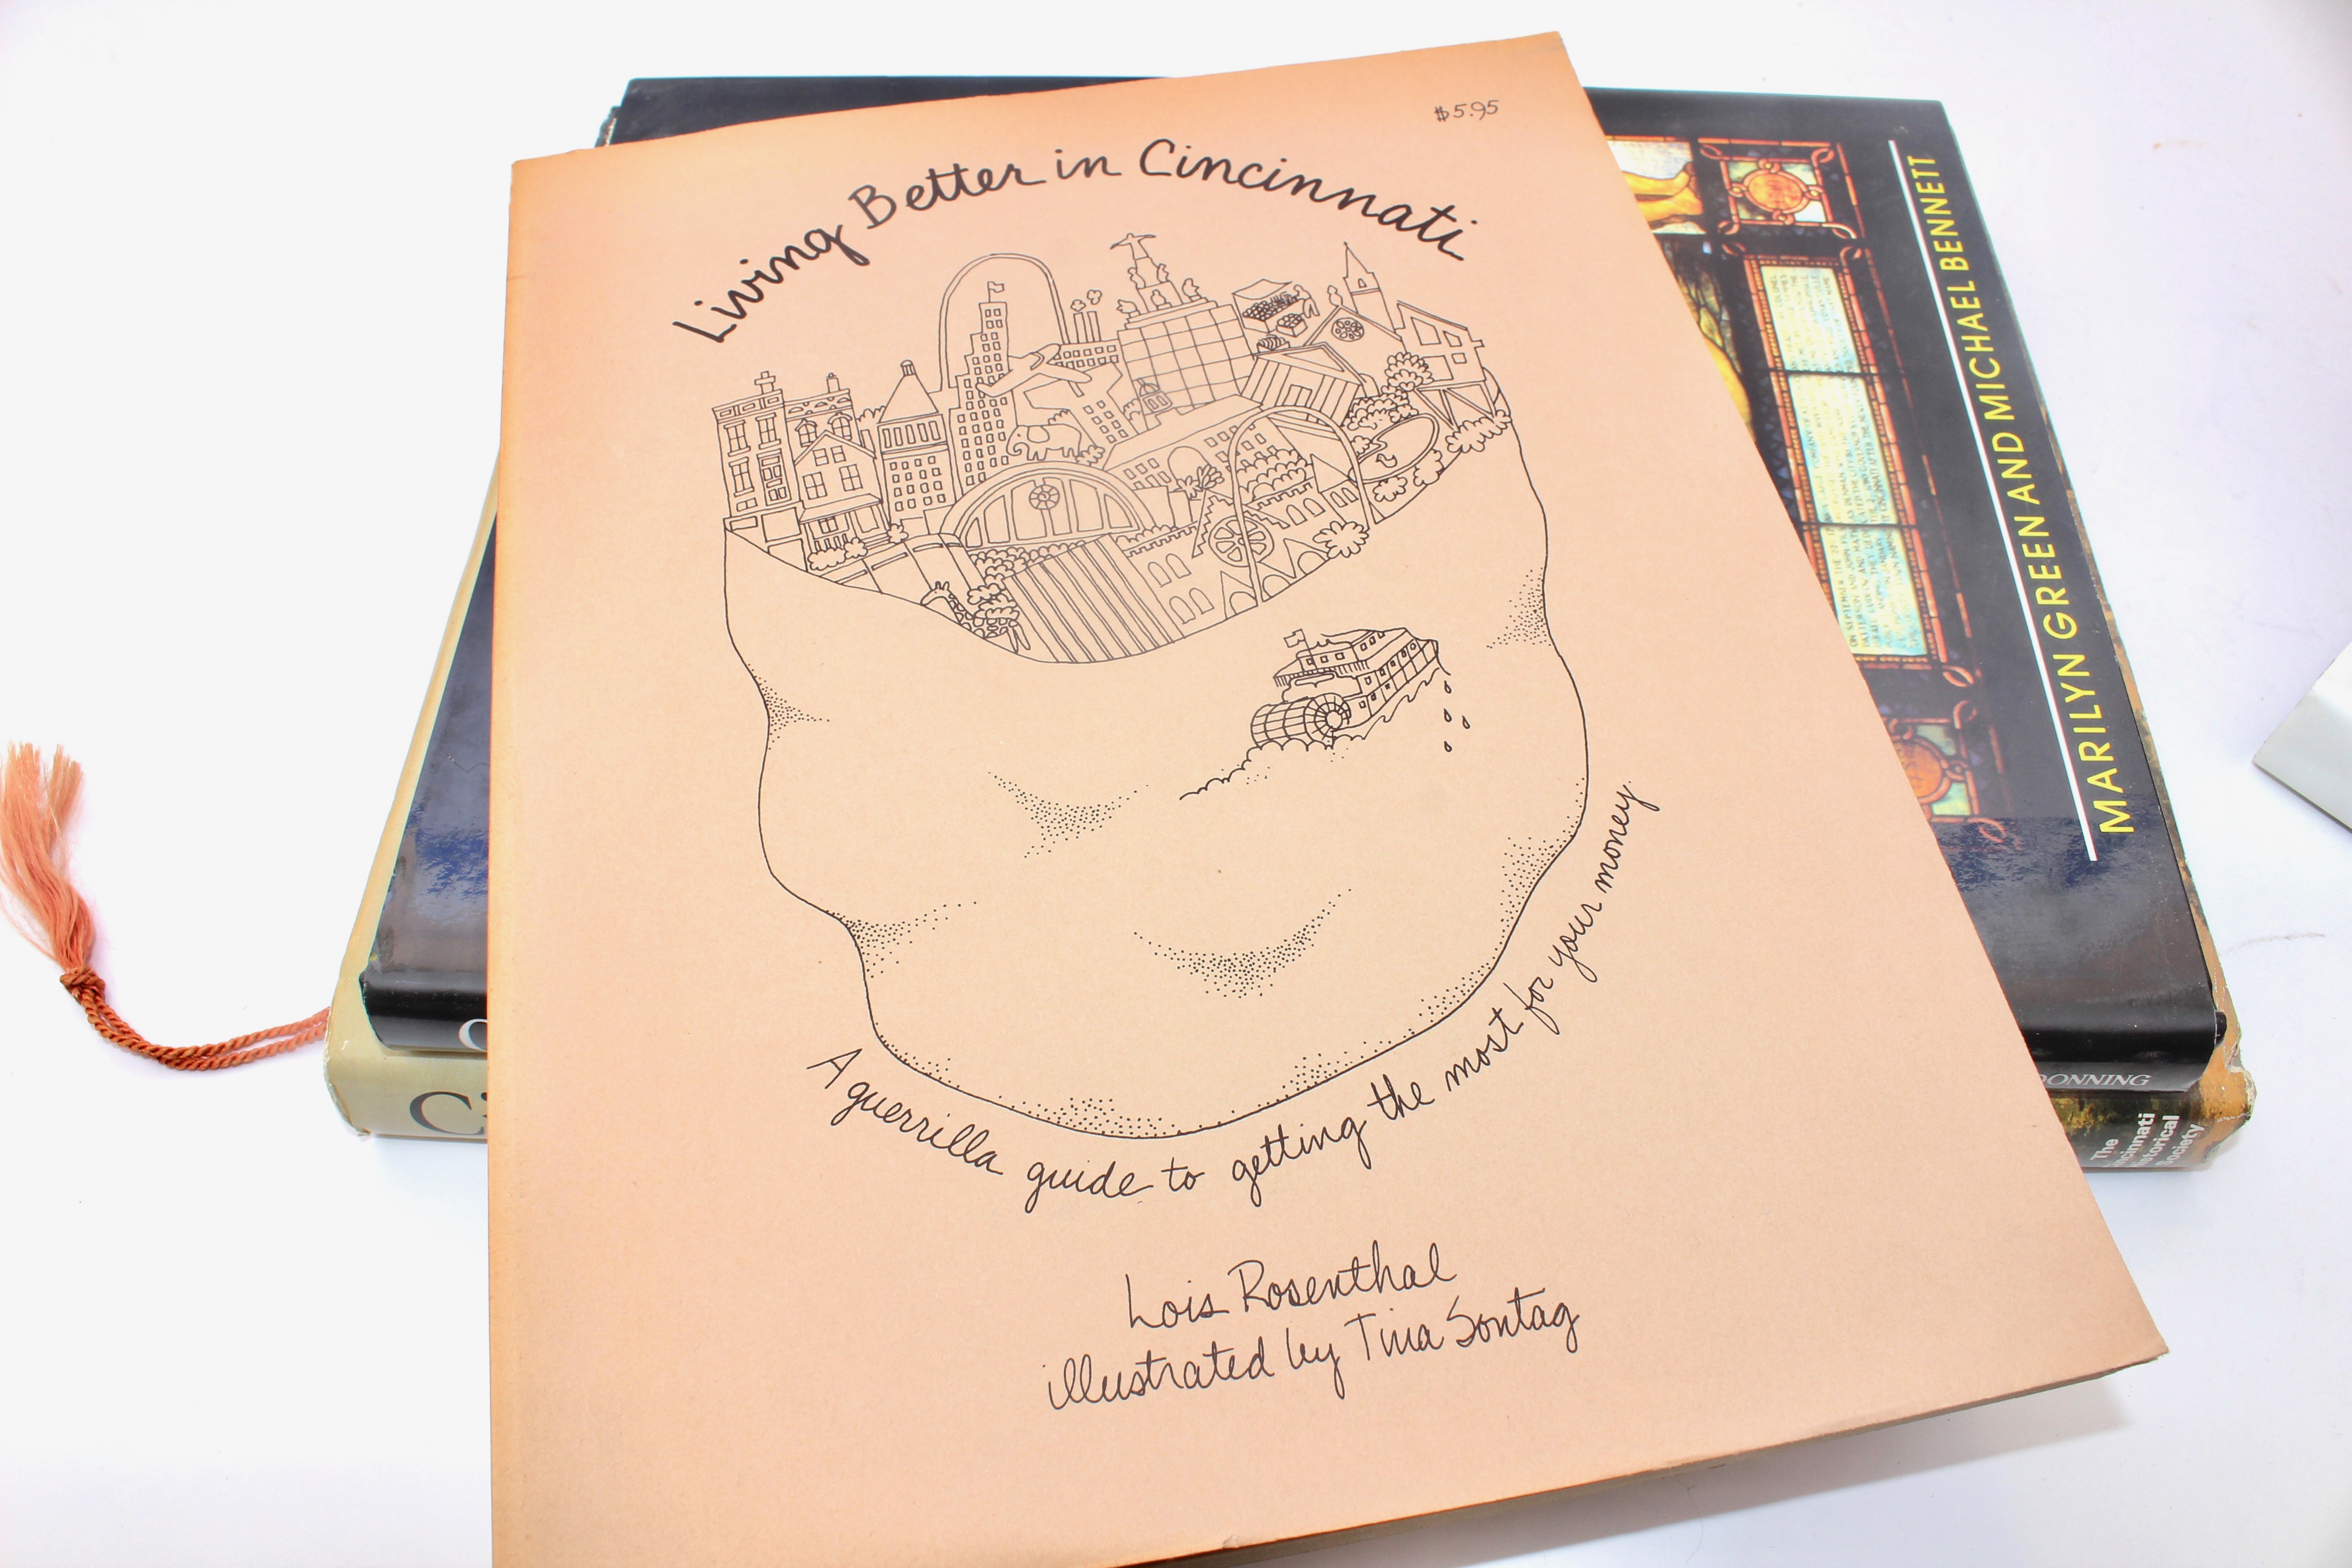 $5.95
Living Better in Cincinnati
A guerrilla guide to getting the most for your money
Lois Rosenthal
illustrated by Tina Sontag
MARILYN GREEN AND MICHAEL BENNETT
DONNING
The
cinnati
istorical
Society
C
Ci